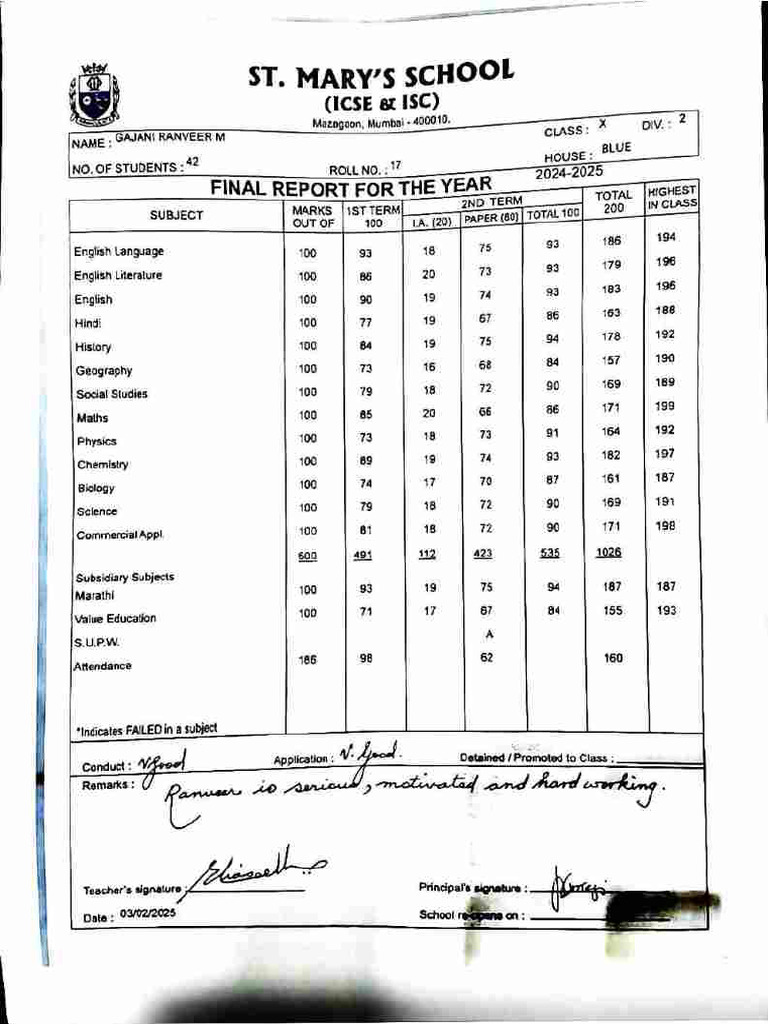 ST. MARY'S SCHOOL
(ICSE & ISC)
Mazagaon, Mumbai - 400010.
NAME : GAJANI RANVEER M CLASS : X DIV. : 2
NO. OF STUDENTS : 42 ROLL NO. : 17 HOUSE : BLUE
FINAL REPORT FOR THE YEAR 2024-2025
SUBJECT MARKS OUT OF 1ST TERM 100 2ND TERM I.A. (20) PAPER (80) TOTAL 100 TOTAL 200 HIGHEST IN CLASS
English Language 100 93 18 75 93 186 194
English Literature 100 86 20 73 93 179 196
English 100 90 19 74 93 183 196
Hindi 100 77 19 67 86 163 188
History 100 84 19 75 94 178 192
Geography 100 73 16 68 84 157 190
Social Studies 100 79 18 72 90 169 189
Maths 100 85 20 66 86 171 199
Physics 100 73 18 73 91 164 192
Chemistry 100 89 19 74 93 182 197
Biology 100 74 17 70 87 161 187
Science 100 79 18 72 90 169 191
Commercial Appl. 100 81 18 72 90 171 198
600 491 112 423 535 1026
Subsidiary Subjects
Marathi 100 93 19 75 94 187 187
Value Education 100 71 17 67 84 155 193
S.U.P.W. A
Attendance 186 98 62 160
*Indicates FAILED in a subject
Conduct : V.Good Application : V. Good. Detained / Promoted to Class :
Remarks : Ranveer is serious, motivated and hard working.
Teacher's signature : Principal's signature :
Date : 03/02/2025 School re-opens on :